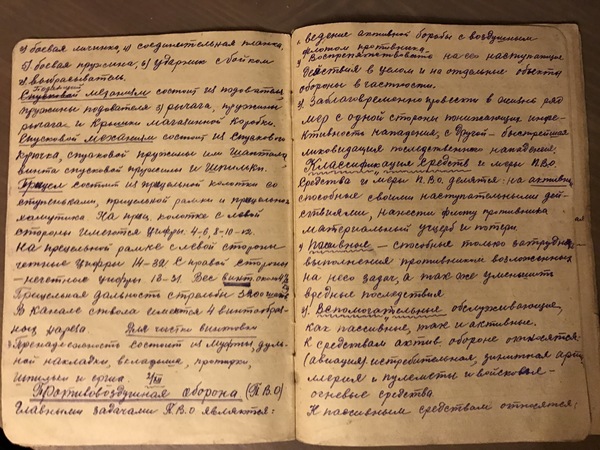 а) боевая личинка, г) соединительная планка,
д) боевая пружина, в) ударник с бойком
выбрасыватель.
Подающий
механизм состоит из подавателя,
пружины подавателя з) рычага, пружины
рычага и крышки магазинной коробки.
Спусковой механизм состоит из спускового
крючка, спусковой пружины или
винта спусковой пружины и шпильки.
Прицел состоит из прицельной колодки со
ступеньками, прицельной рамки и прицельного
хомутика На приц. колодке с левой
стороны имеются цифры 4-6, 8-10-12.
На прицельной рамке с левой стороны
четные цифры 14-32 С правой стороны
— нечетные цифры 13-31. Вес винт. около
Прицельная дальность стрельбы 3200
В канале ствола имеются 4 винтообраз-
ных нареза. Для чистки винтовки
Принадлежность состоит из муфты, дуль-
ной накладки, вкладыша, протирки,
шпильки и ерша.
Противовоздушная оборона (П.В.О)
Главными задачами П.В.О являются:
ведение активной борьбы с воздушным
флотом противника.
Воспрепятствовать на его наступающие
действия в целом и на отдельные объекты
обороны в частности.
Заблаговременно провести в жизнь ряд
мер с одной стороны понижающих эффе-
ктивность нападения, с другой — быстрейшая
ликвидация последствий нападения.
Классификация средств и меры П.В.О.
Средства и меры П.В.О. делятся: на активн.
способные своими наступательными дей-
ствиями, нанести флоту противника
материальный ущерб и потери
Пасивные — способные только затруднить
выполнения противником возложенных
на него задач, а так же уменьшить
вредные последствия
Вспомогательные обслуживающие,
как пассивные, так и активные.
К средствам актив обороне относятся:
(авиация) истребительная, зинитная арти
лерия и пулеметы и войсковые —
огневые средства
К пассивным средствам относятся: